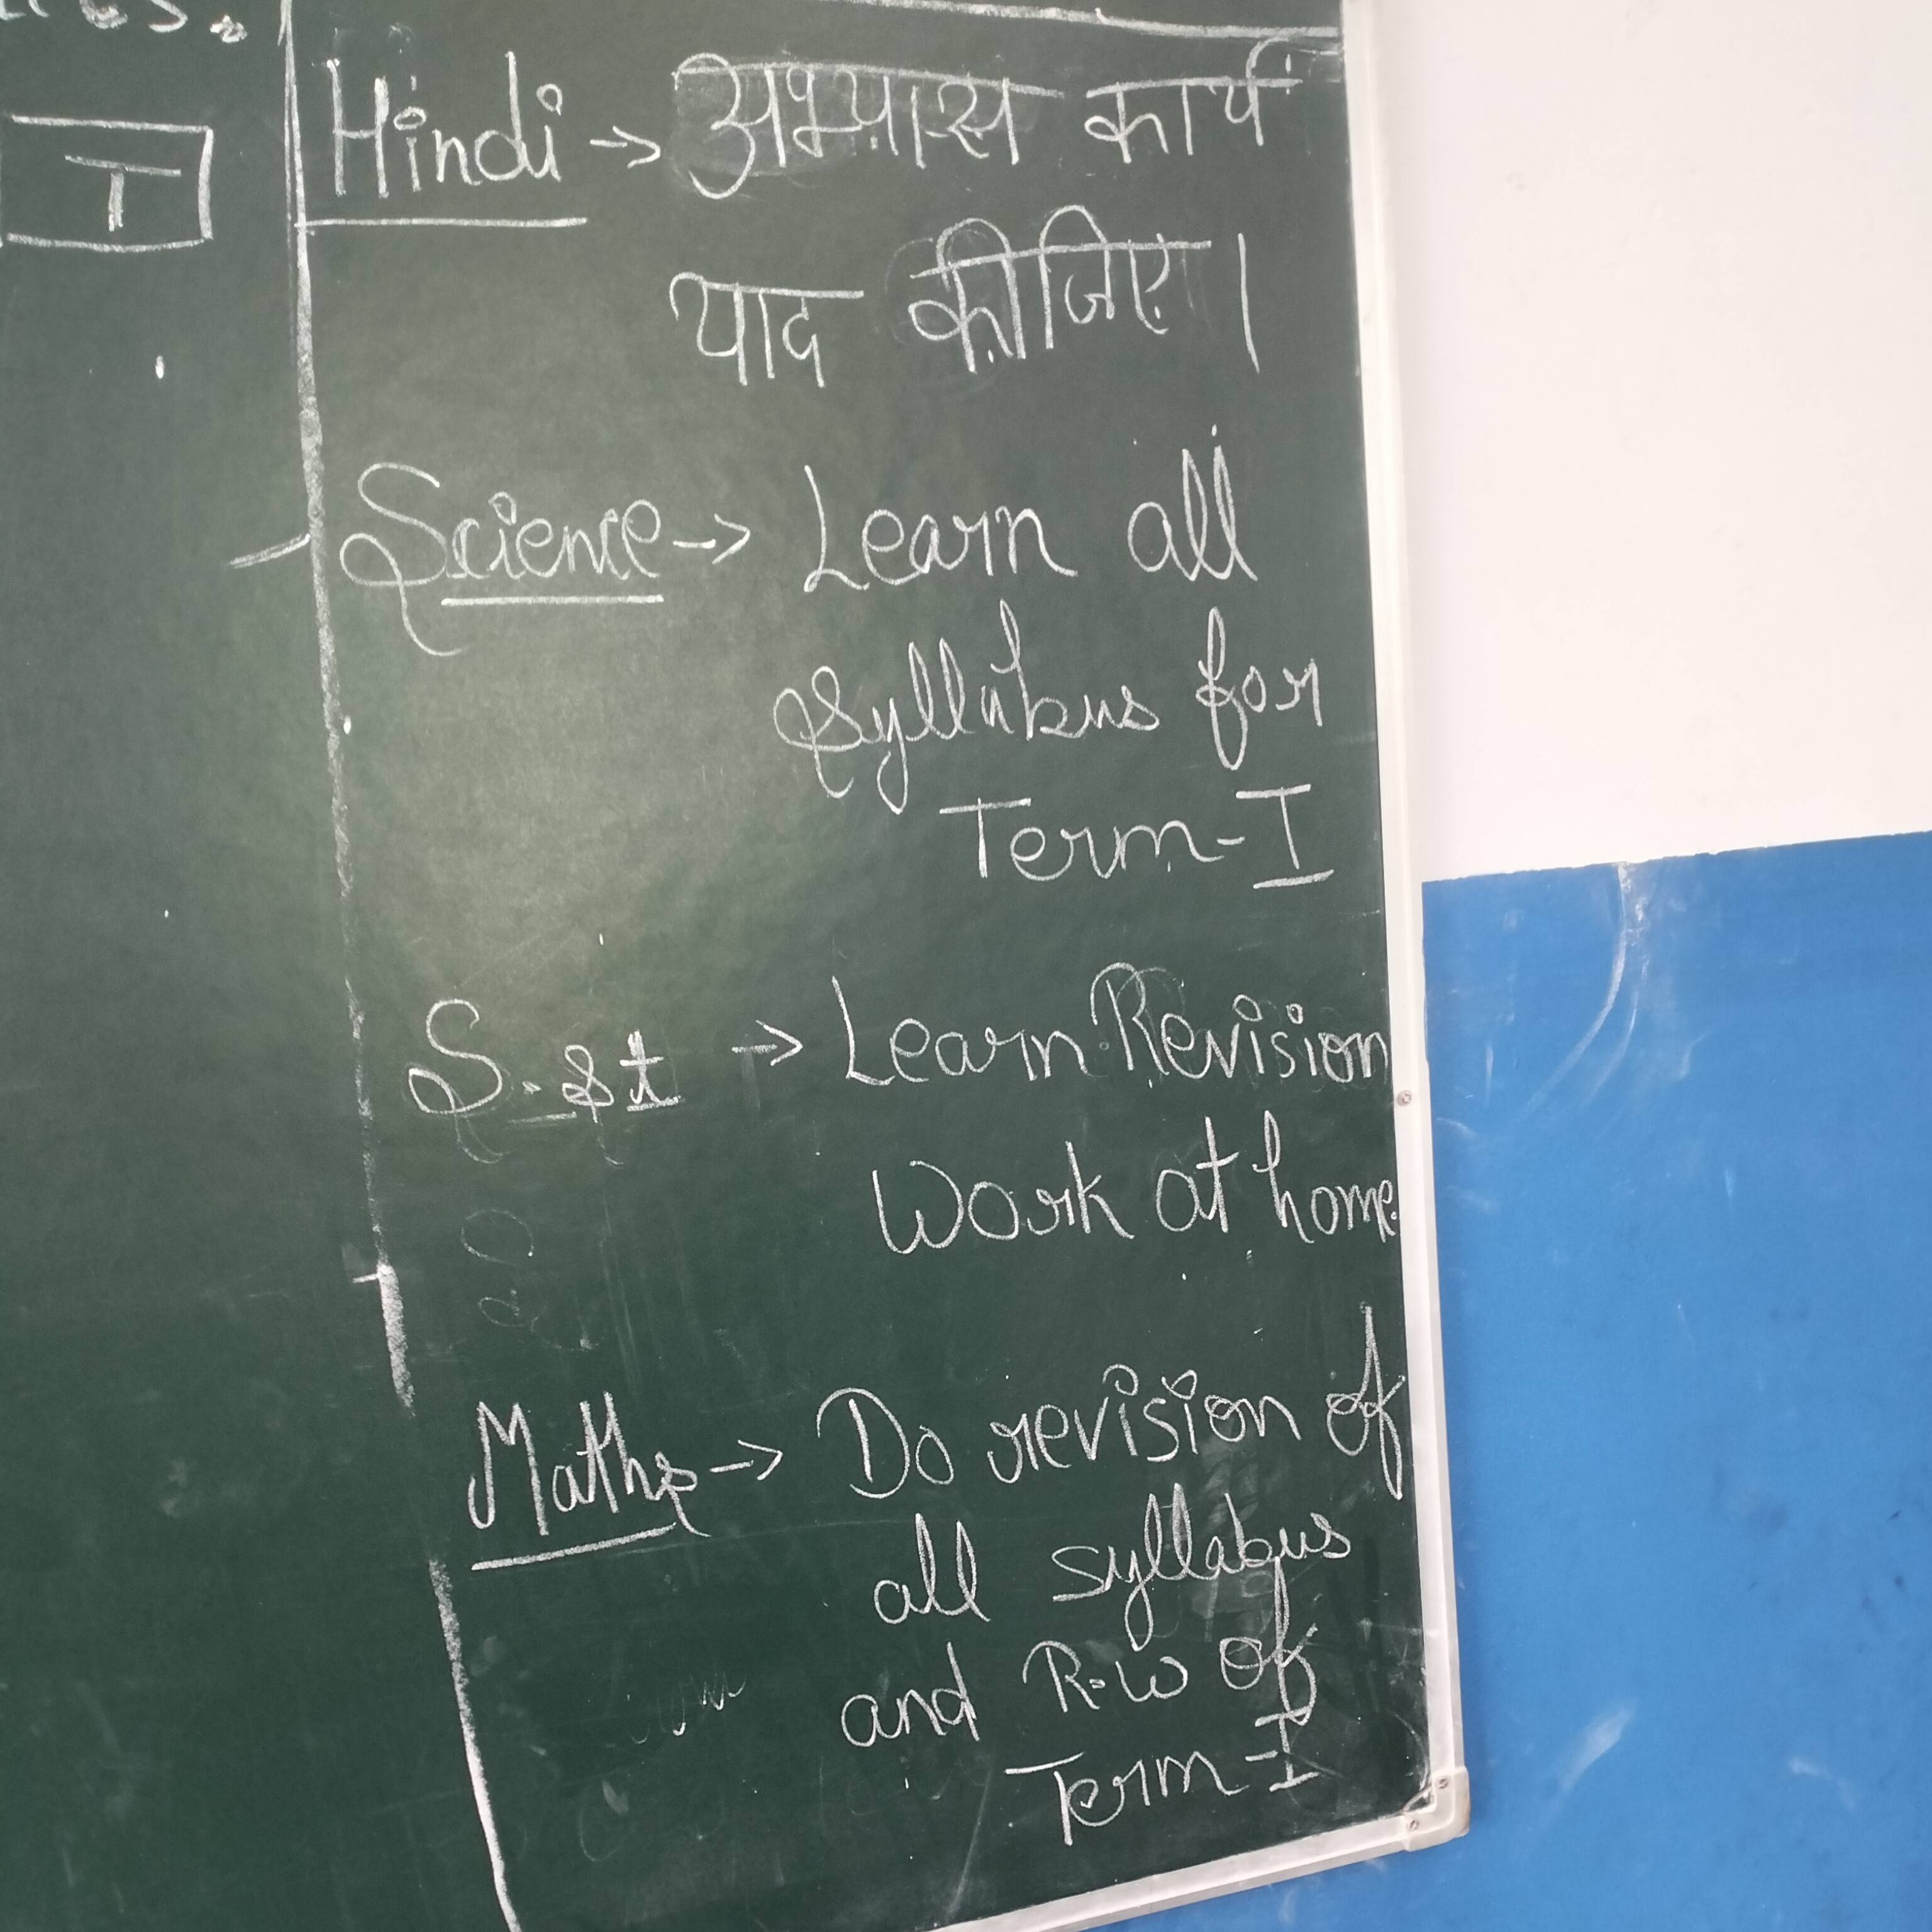 T
Hindi -> अभ्यास कार्य
याद कीजिए।
Science -> Learn all
Syllabus for
Term-I
S.St -> Learn Revision
Work at home.
Maths -> Do revision of
all syllabus
and R.w of
Term-I